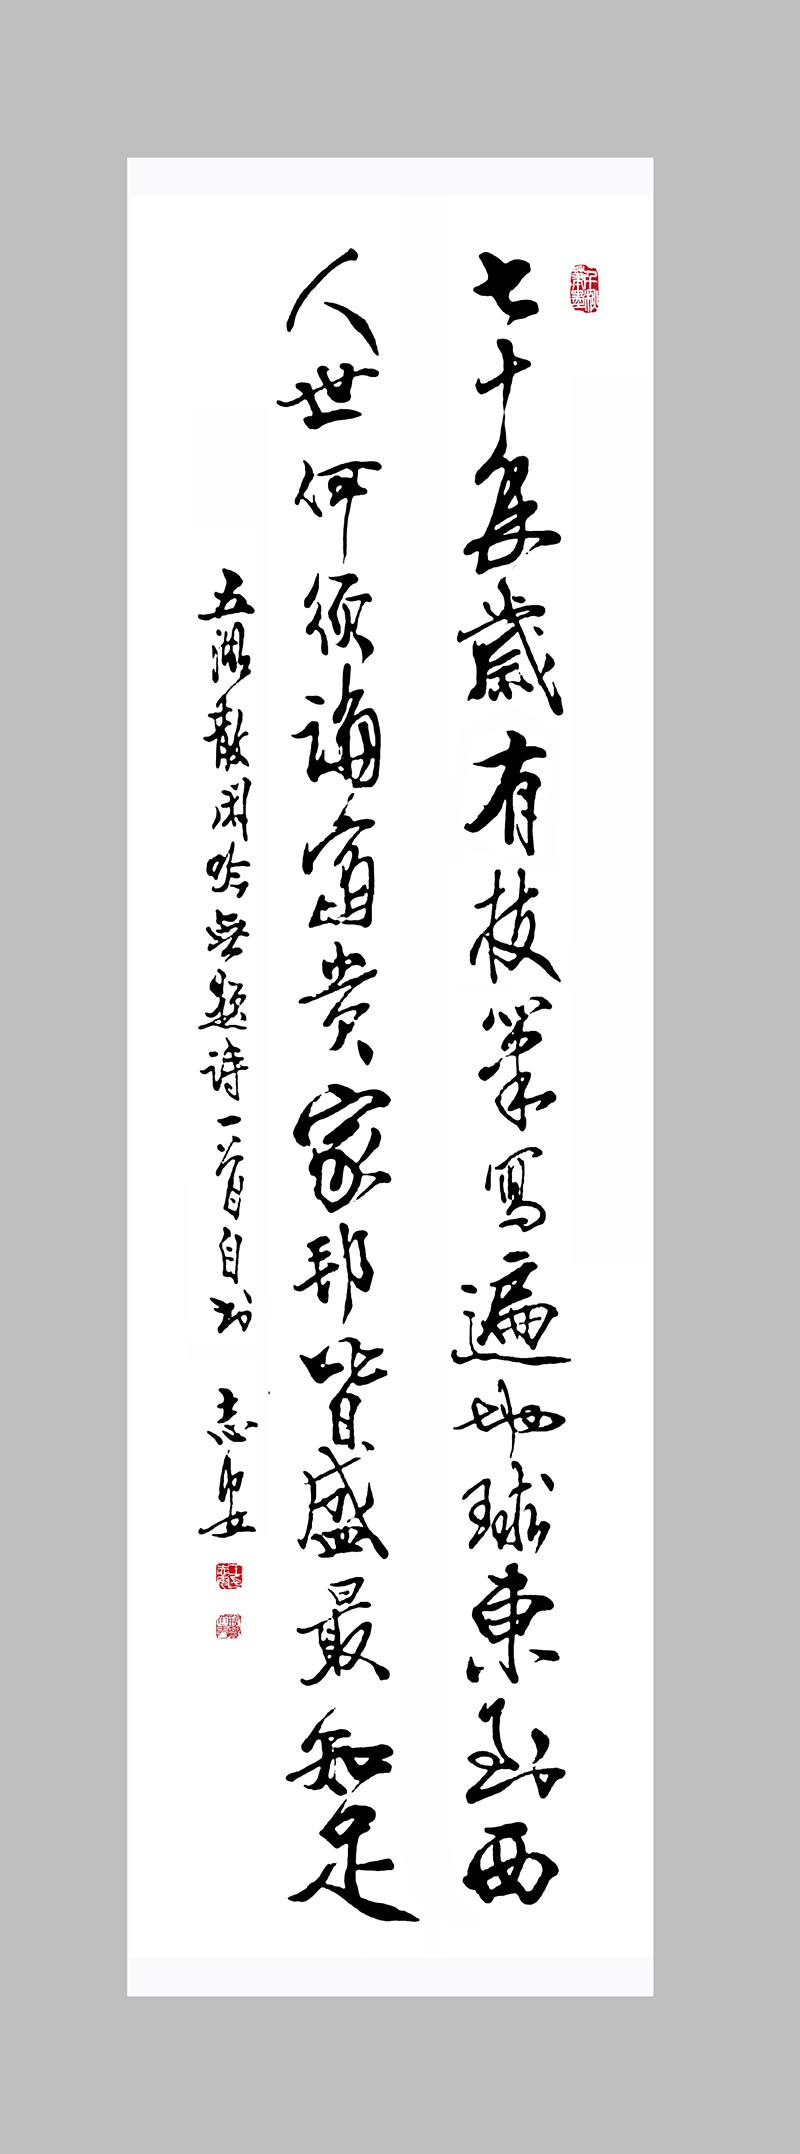 七十幾歲有枝筆寫遍地球東到西
人世何須論富貴家邦皆盛最知足
五湖散閑吟無題诗一首自书 志安